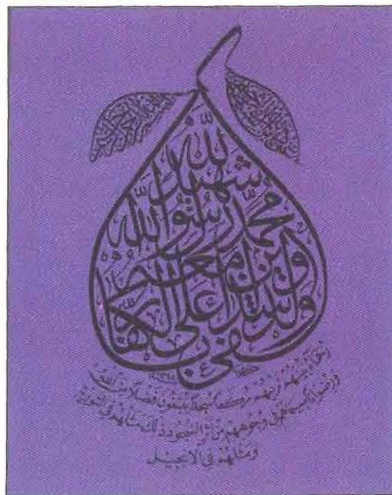 وكفى بالله شهيدا
محمد رسول الله
والذين معه
أشداء على الكفار
رحماء بينهم تراهم ركعا سجدا يبتغون فضلا من الله
ورضوانا سيماهم في وجوههم من أثر السجود ذلك مثلهم في التورية
ومثلهم في الانجيل